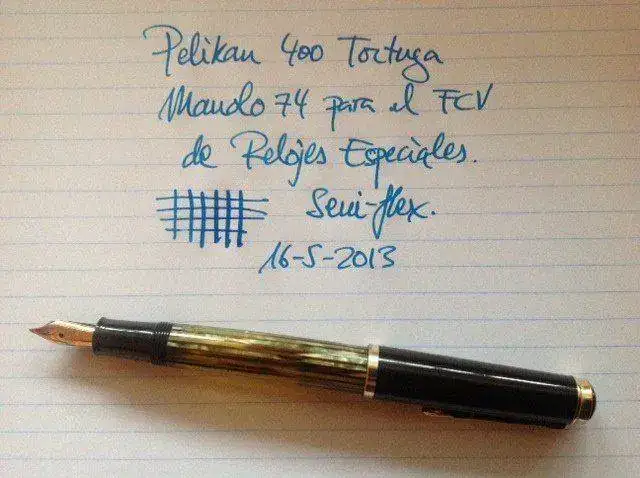 Pelikan 400 Tortuga
Manolo 74 para el FCV
de Relojes Especiales.
Semi-flex.
16-5-2013